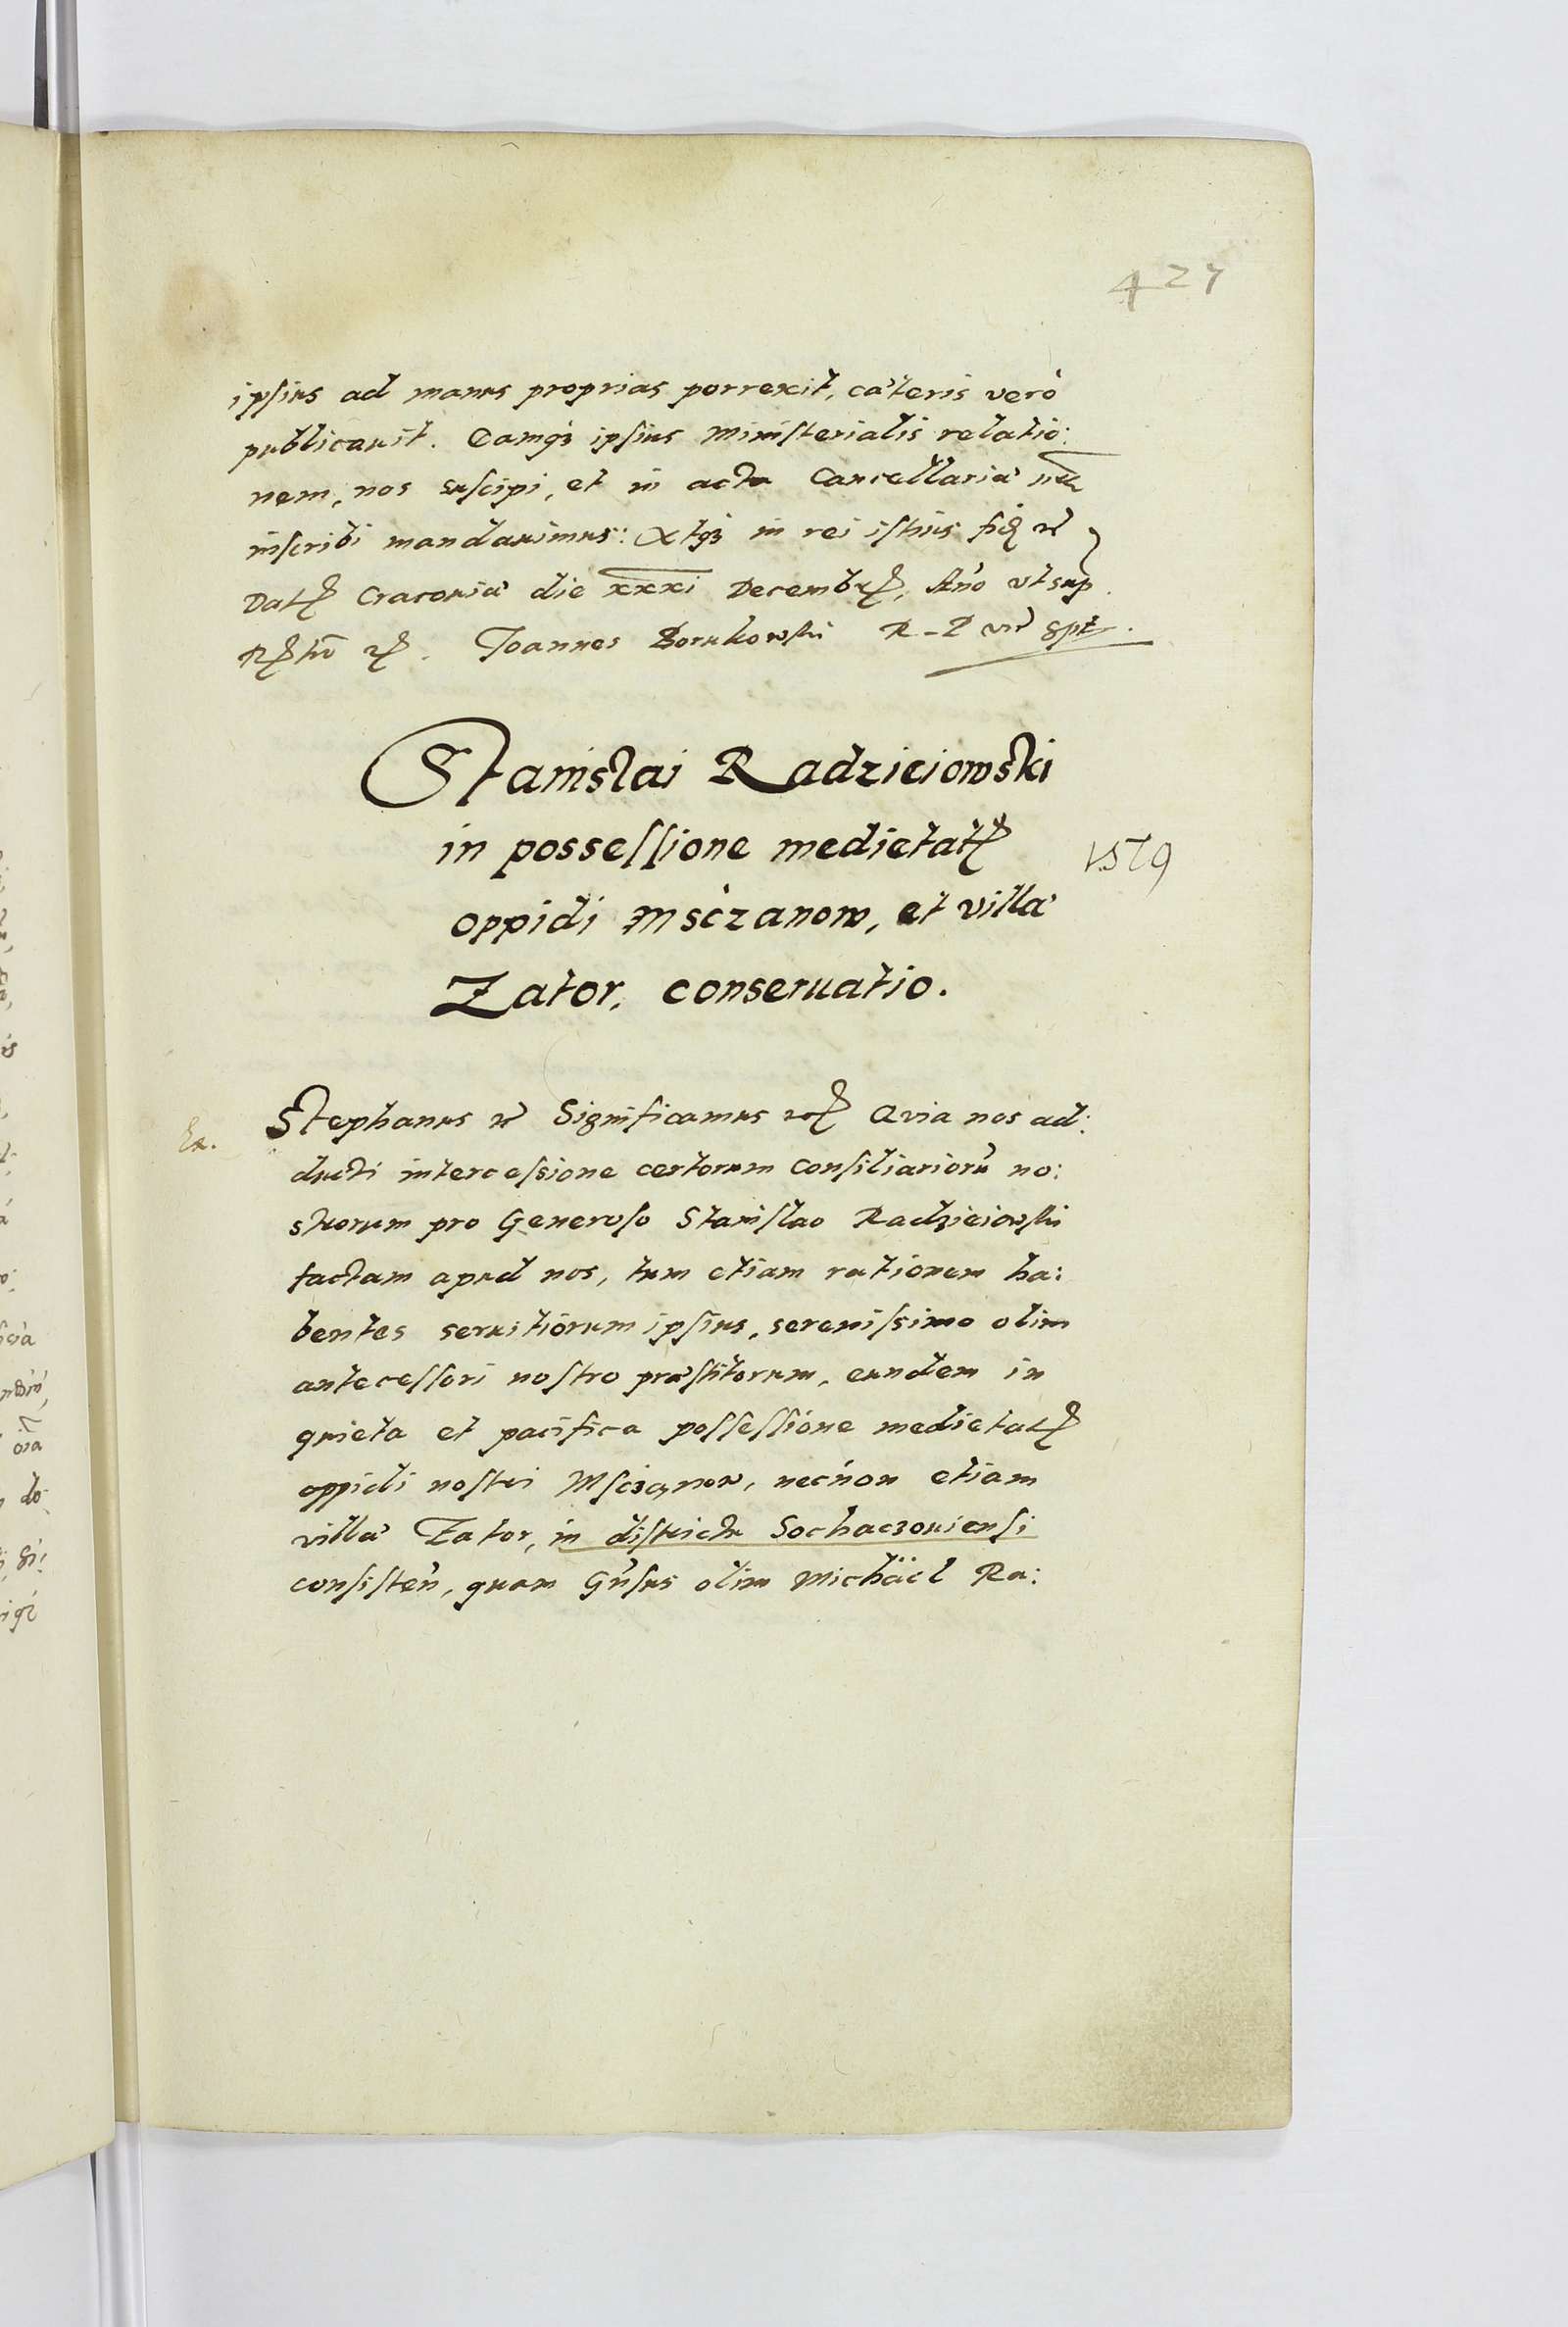 427
ipsius ad manus proprias porrexit, cæteris verò
publicauit. Eamqȝ ipsius Ministerialis relatio:
nem, nos suscipi, et in acta Cancellariæ nrae
inscribi mandauimus: In
rei istius fid etc
Datꝭ Cracouiæ die xxxi Decembrꝭ, Año vt sup.
Joannes Borukowski R. P. Vic
Stanislai Radzieiowski
in possessione medietatꝭ
1579
oppidi Msczanow, et villæ
Zator, conseruatio.
Ex.
Stephanus etc Significamus etc Quia nos ad:
ducti intercessione certorum Consiliariorũ no:
strorum pro Generoso Stanislao Radzieiowski
factam apud nos, tum etiam rationem ha:
bentes seruitiorum ipsius, serenissimo olim
antecessori nostro præstitorum, eundem in
quieta et pacifica possessione medietatꝭ
oppidi nostri Msczanow, necnon etiam
villæ Zator, in districtu Sochaczouiensi
consisteñ, quam Gñsus olim Michäel Ra: